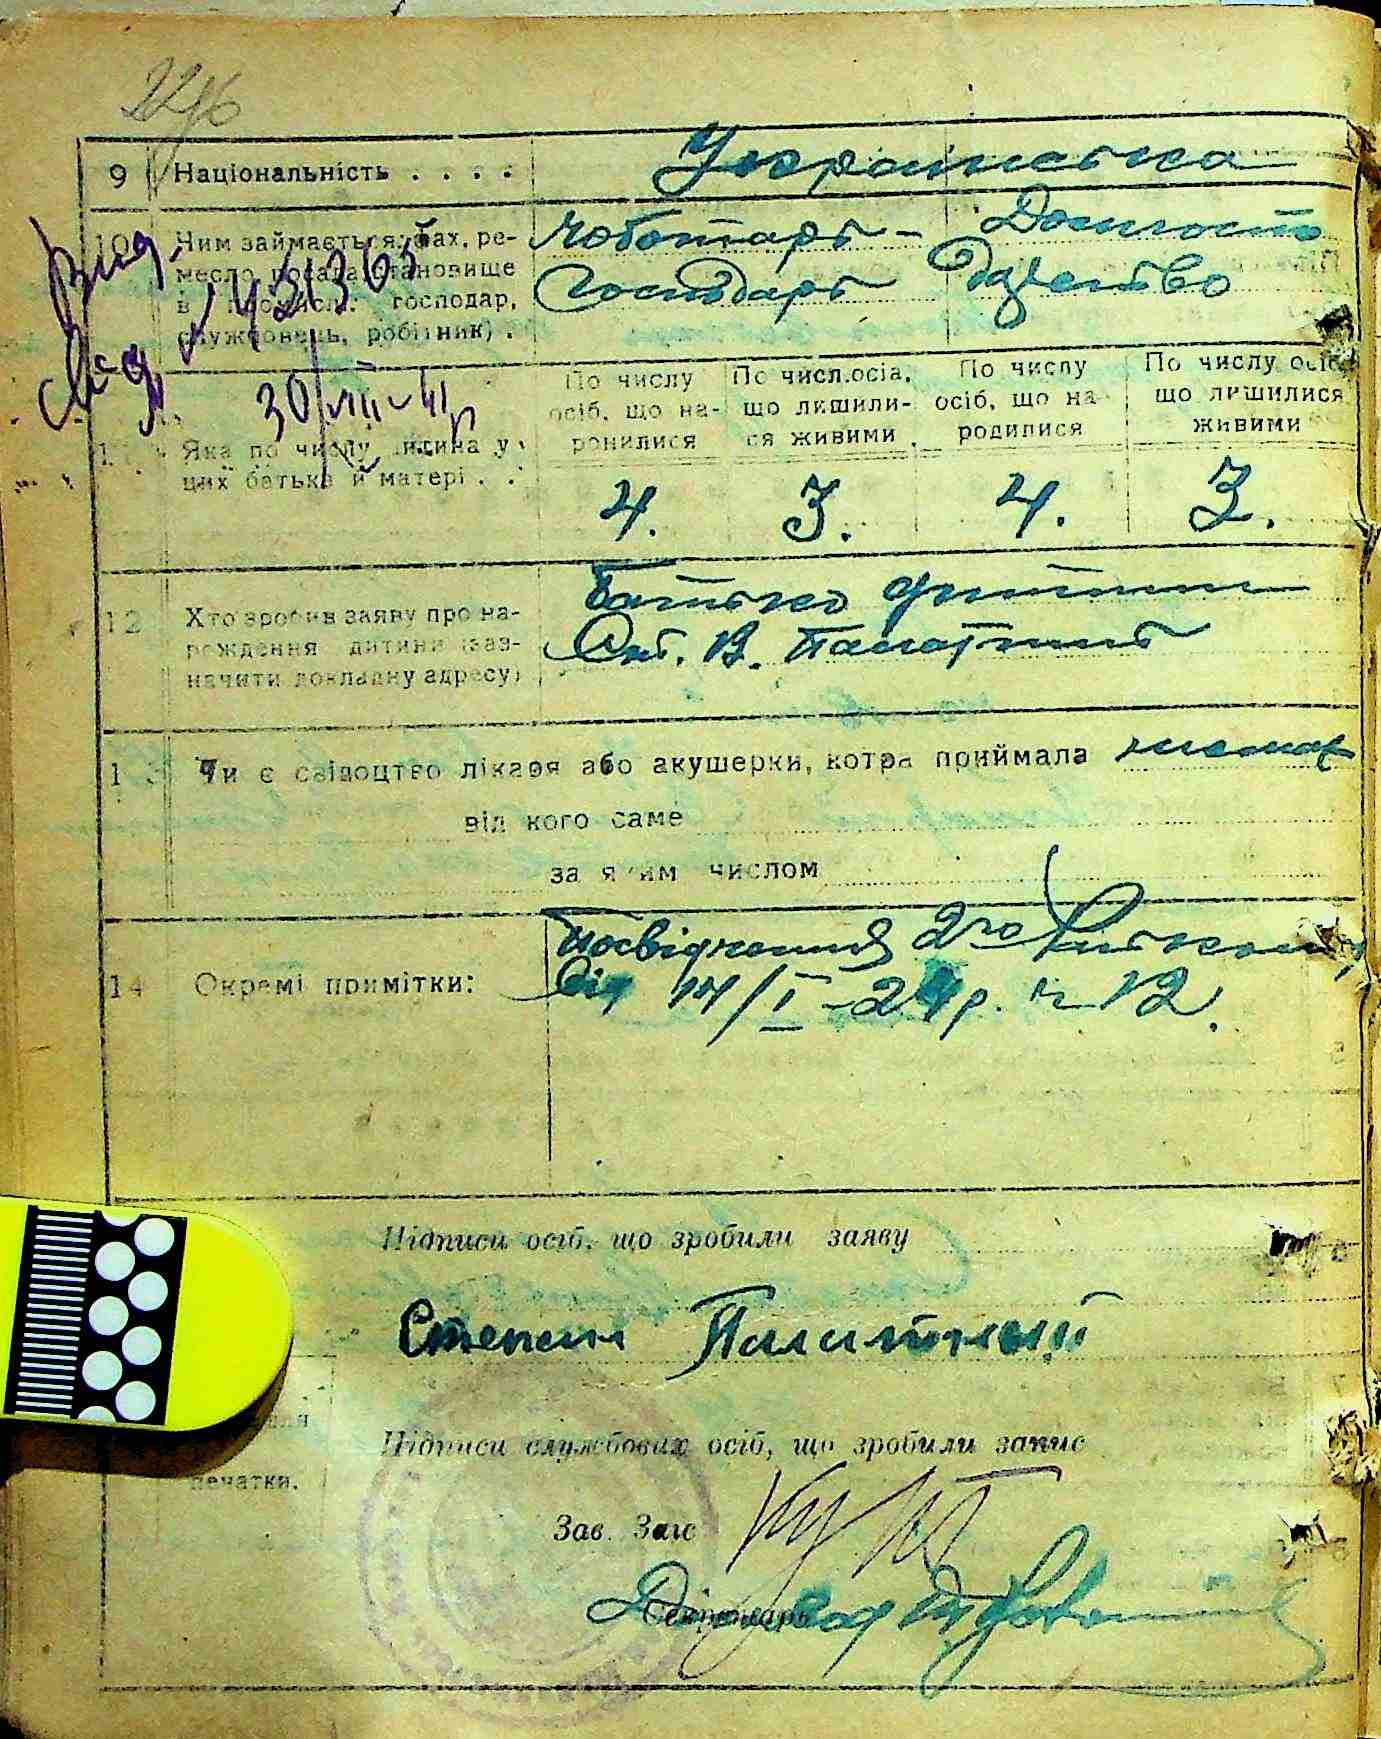 9 Національність . . . . Українська
Вид.
Чим займається: фах, ре- Чоботарь -
месло, посада, становище Господарь
господар,
службовець, робітник) .
св-д № 451363
30/VIII-41р
По числу По числ.осіб, По числу По числу осіб
осіб, що на- що лишили- осіб, що на- що лишилися
родилися ся живими родилися живими
Яка по числу дитина у
цих батька й матері . . 4. 3. 4. 3.
12 Хто зробив заяву про на- Батько дитини
родження дитини (заз- Окт. В. Палатний
начити докладну адресу)
13 Чи є свідоцтво лікаря або акушерки, котра приймала немає
від кого саме
за яким числом
14 Окремі примітки: Посвідчення 2го
Від 14/I-24р. № 12.
Підписи осіб, що зробили заяву
Степан Палатный
Підписи службових осіб, що зробили запис
печатки.
Зав. Загс
Секретарь